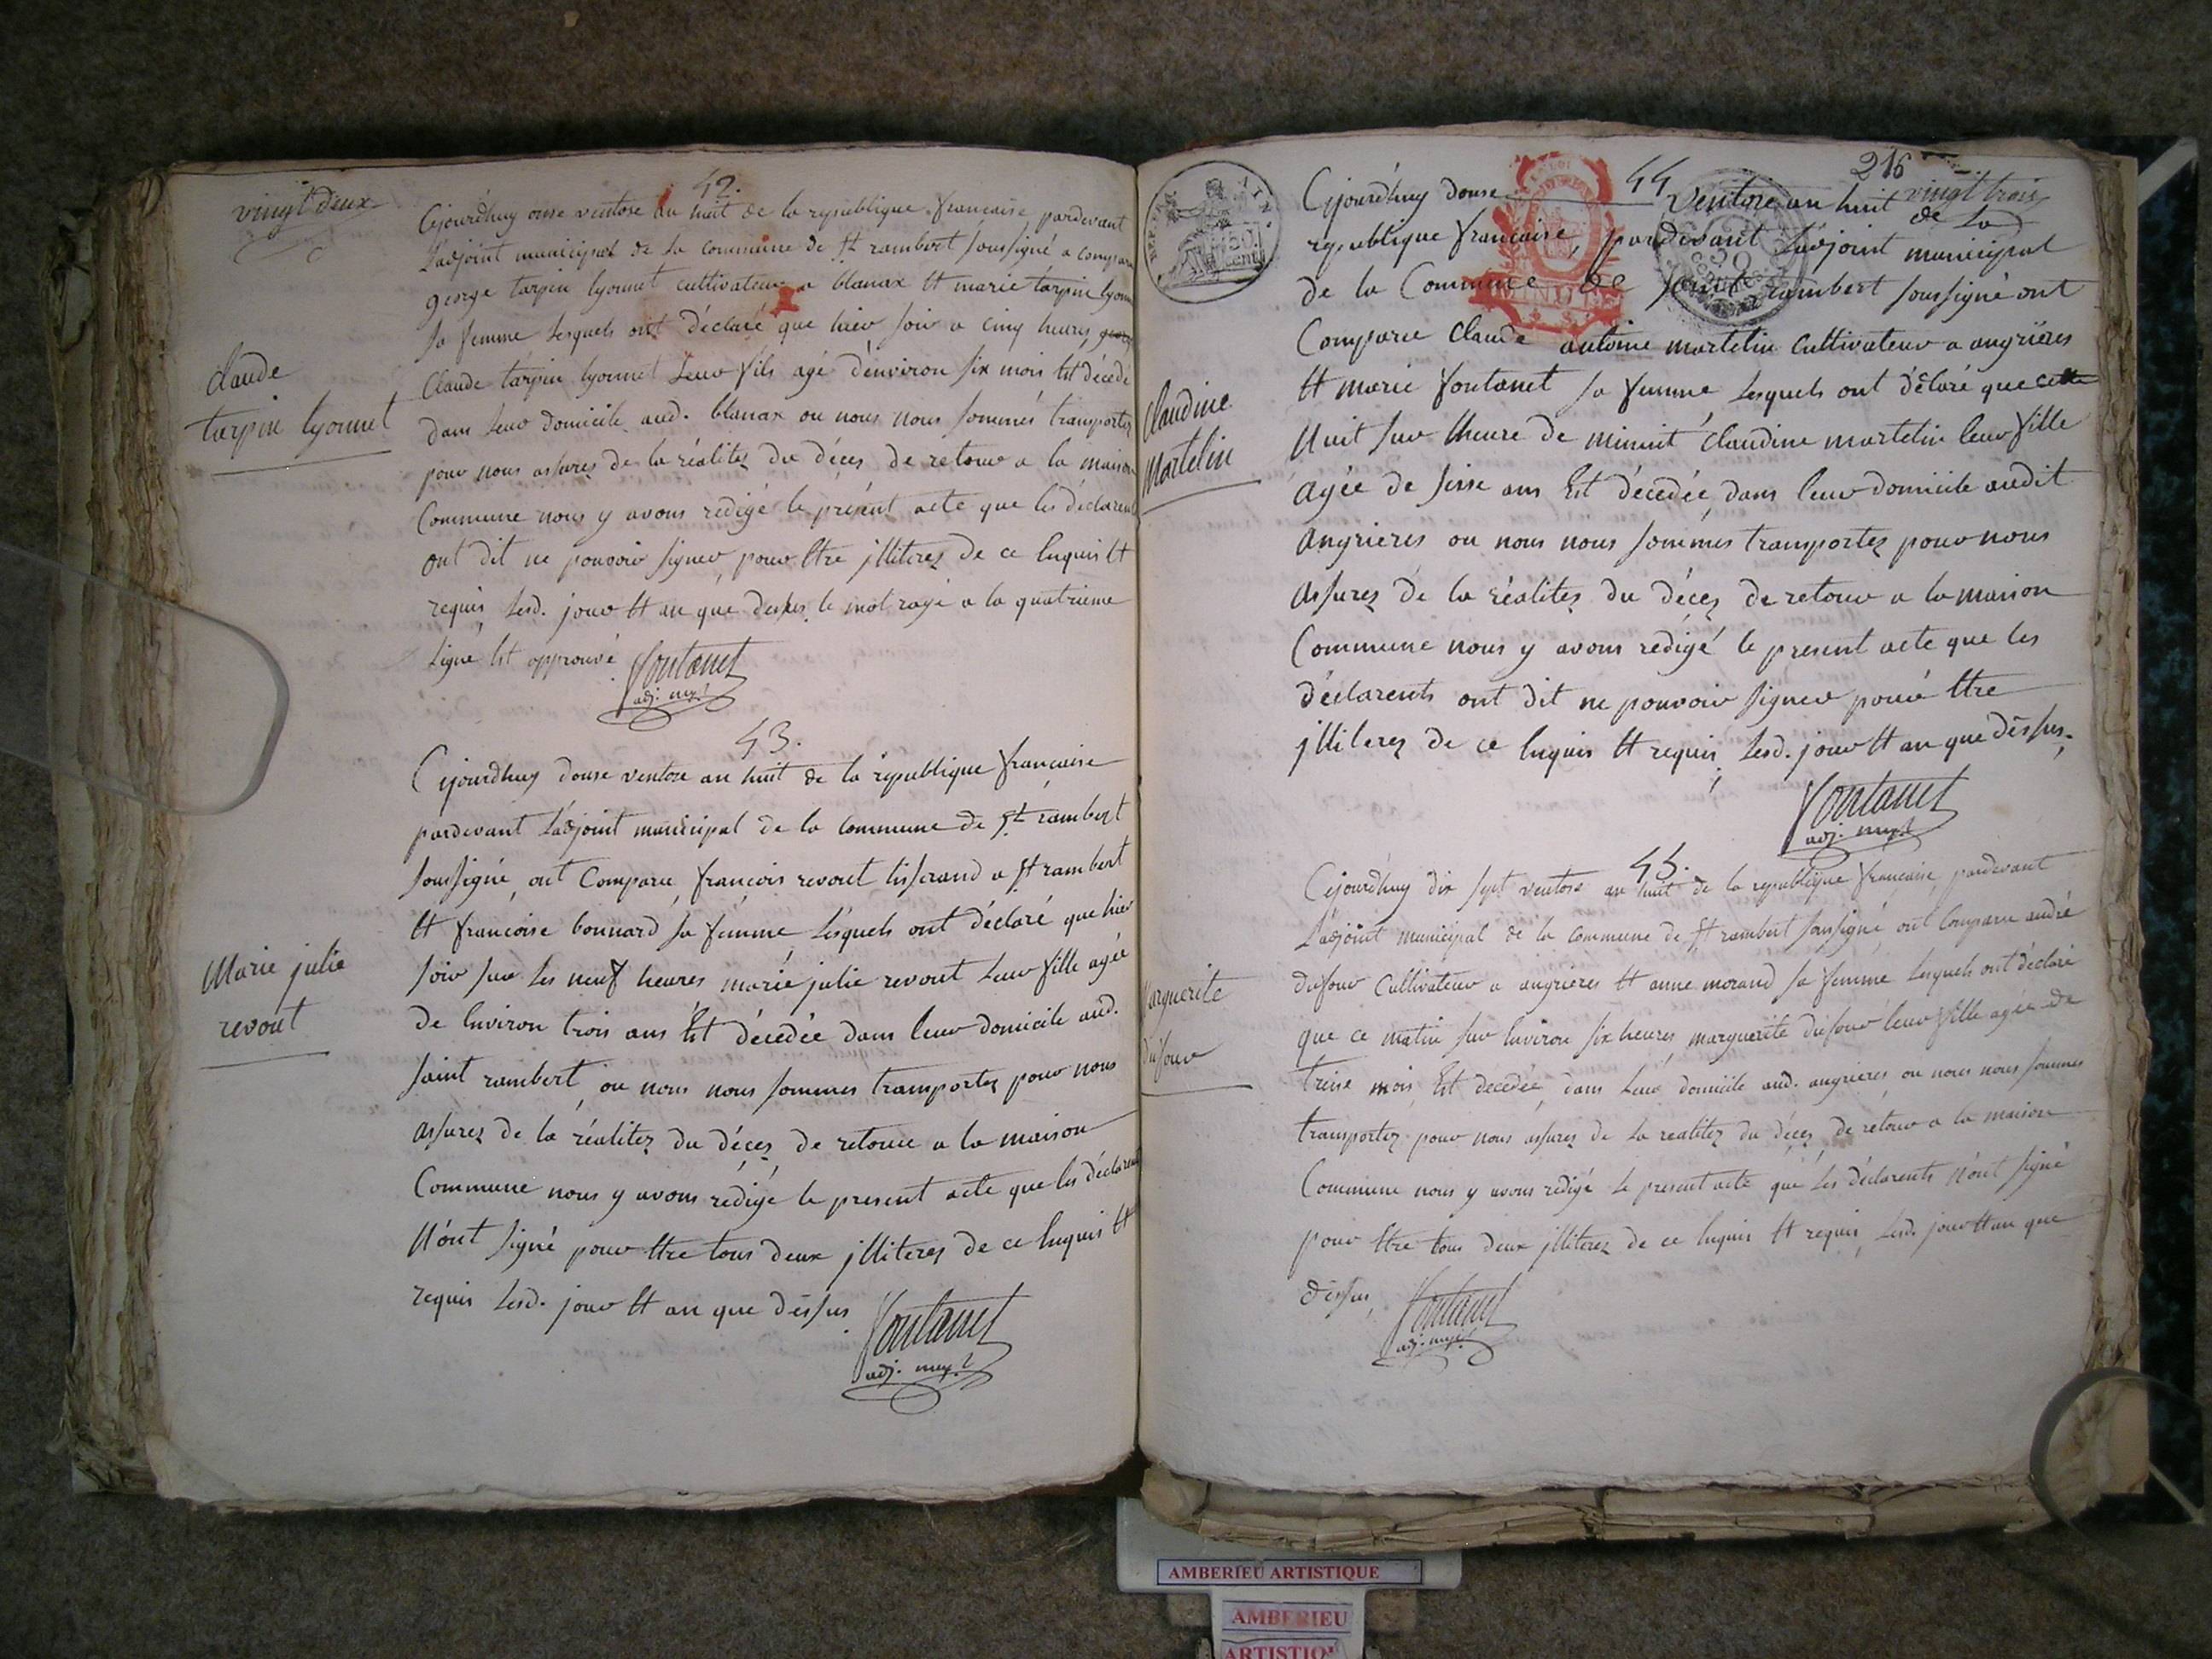 vingt deux
42.
Cejourdhuy onse ventose an huit de la republique francaise, pardevant
L'adjoint municipal de la commune de St rambert soussigné a comparu
george tarpin lyonnet cultivateur a blanax et marie tarpin lyonnet
sa femme lesquels ont déclaré que hier soir a cinq heures
Claude tarpin lyonnet leur fils agé d'environ six mois Est décédé
dans leur domicile aud. blanax ou nous nous sommes transportez
pour nous assurez de la réalitez du décez de retour a la maison
Commune nous y avons rédigé le présent acte que les déclarent
ont dit ne pouvoir signer, pour Etre jlliterez de ce Enquis Et
requis, Lesd. jour Et an que dessus le mot rayé a la quatrieme
Ligne Est approuvé
Fontanet
adj. mupl
claude
tarpin lyonnet
43.
Cejourdhuy douse ventose an huit de la république francaise
pardevant L'adjoint municipal de la commune de St rambert
soussigné, ont Comparu françois revout tisserand a St rambert
Et françoise bonnard sa femme Lesquels ont déclaré que hier
soir sur les neuf heures marie julie revout Leur fille agée
de Environ trois ans Est décedée dans leur domicile aud.
saint rambert, ou nous nous sommes transportez pour nous
assurez de la réalitez du décez de retour a la maison
Commune nous y avons rédigé le present acte que les déclarent
N'ont signé pour Etre tous deux jlliterez de ce Enquis Et
requis Lesd. jour Et an que dessus
Fontanet
adj. mupl
Marie julie
revout
216
vingt trois
44
Cejourdhuy douse ventose an huit de la
republique francaise, pardevant L'adjoint municipal
de la Commune de saint rambert soussigné ont
Comparu Claude antoine martelin Cultivateur a angrieres
Et marie fontanet sa femme Lesquels ont déclaré que cette
Nuit sur Lheure de minuit Claudine martelin leur fille
agée de seise ans Est décedée, dans leur domicile audit
angrieres ou nous nous sommes transportez pour nous
assurez de la réalitez du décez de retour a la maison
Commune nous y avons rédigé le present acte que les
déclarents ont dit ne pouvoir signer pour Etre
jlliterez de ce Enquis Et requis, Lesd. jour Et an que dessus.
Fontanet
adj. mupl
Claudine
Martelin
50
cent.
45.
Cejourdhuy dix sept ventose an huit de la republique francaise, pardevant
L'adjoint municipal de la commune de St rambert soussigné, ont Comparu andré
dufour Cultivateur a angrieres Et anne morand sa femme Lesquels ont déclaré
que ce matin sur Environ six heures marguerite dufour leur fille agée de
treise mois Est decedée, dans Leur domicile aud. angrieres, ou nous nous sommes
transportez pour nous assurez de la realitez du décez, de retour a la maison
Commune nous y avons rédigé le present acte que les déclarents N'ont signé
pour Etre tous deux jlliterez de ce Enquis Et requis, Lesd. jour Et an que
dessus,
Fontanet
adj. mupl
Marguerite
dufour
AMBERIEU ARTISTIQUE
AMBERIEU
ARTISTIQU